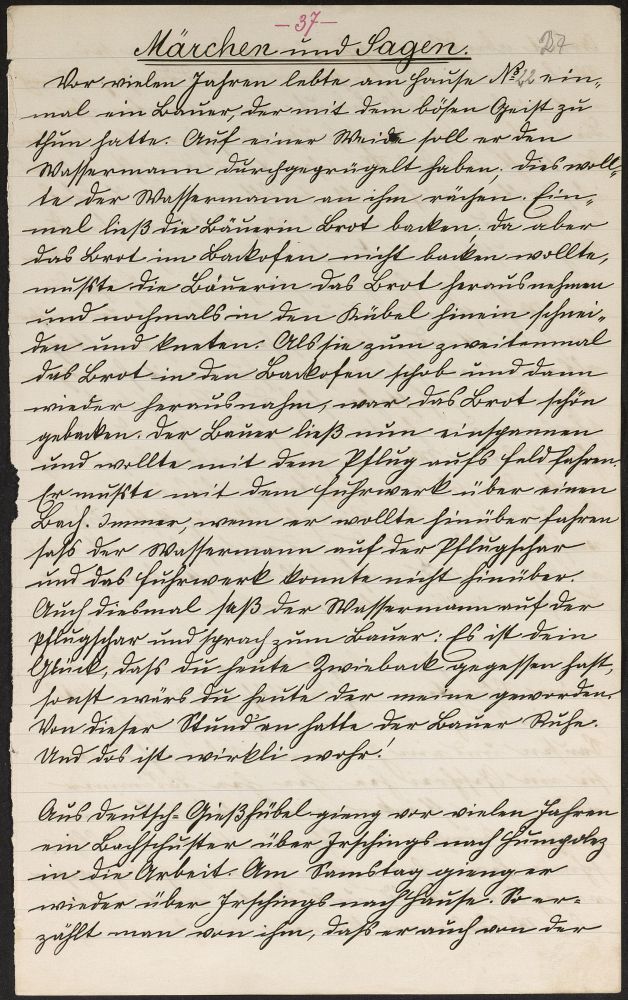 - 37 -
Märchen und Sagen.
27
Vor vielen Jahren lebte am Hause No 22 ein-
mal ein Bauer, der mit dem bösen Geist zu
thun hatte. Auf einer Weide soll er den
Wassermann durchgeprügelt haben; dies woll-
te der Wassermann an ihm rächen. Ein-
mal ließ die Bäuerin Brot backen; da aber
das Brot im Backofen nicht backen wollte,
mußte die Bäuerin das Brot herausnehmen
und nochmals in den Kübel hinein schnei-
den und kneten. Als sie zum zweitenmal
das Brot in den Backofen schob und dann
wieder herausnahm, war das Brot schön
gebacken. Der Bauer ließ nun einspannen
und wollte mit dem Pflug aufs Feld fahren.
Er mußte mit dem Fuhrwerk über einen
Bach. Immer, wenn er wollte hinüber fahren
saß der Wassermann auf der Pflugschar
und das Fuhrwerk konnte nicht hinüber.
Auch diesmal saß der Wassermann auf der
Pflugschar und sprach zum Bauer: Es ist dein
Glück, daß du heute Zwieback gegessen hast,
sonst wärs du heute der meine geworden.
Von dieser Stund an hatte der Bauer Ruhe.
Und das ist wirkli wohr!
Aus Deutsch-Gießhübel gieng vor vielen Jahren
ein Bachschuster über Irschings nach Humpolez
in die Arbeit. Am Samstag gieng er
wieder über Irschings nach Hause. So er-
zählt man von ihm, daß er auch von der